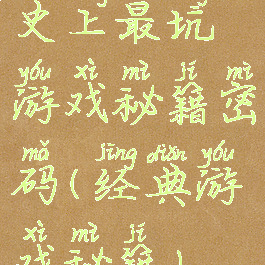 史上最坑
yóu xì mì jí mì
游戏秘籍密
mǎ jīng diǎn yóu
码(经典游
xì mì jí
戏秘籍)